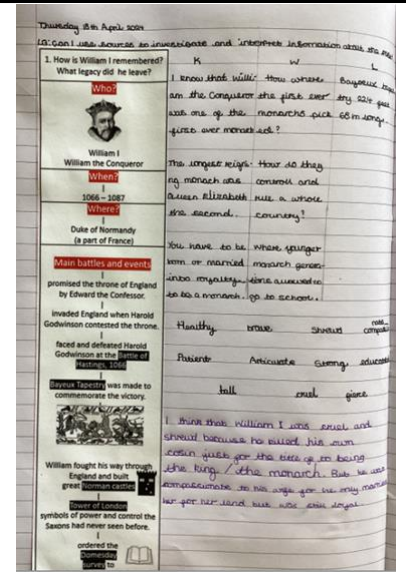 Thursday 18th April 2024
LO: Can I use sources to investigate and interpret information about the
1. How is William I remembered?
What legacy did he leave?
Who?
William I
William the Conqueror
When?
1066 – 1087
Where?
Duke of Normandy
(a part of France)
Main battles and events
promised the throne of England
by Edward the Confessor.
invaded England when Harold
Godwinson contested the throne.
faced and defeated Harold
Godwinson at the Battle of
Hastings, 1066
Bayeux Tapestry was made to
commemorate the victory.
William fought his way through
England and built
great Norman castles
Tower of London
symbols of power and control the
Saxons had never seen before.
ordered the
Domesday
survey to
K
I know that Willi
am the Conqueror
was one of the
first ever monarch
The longest reigni
ng monach was
Queen Elizabeth
the second.
You have to be
born or married
into royalty
to be a monarch.
W
How where
the first ever
monarchs pick
ed?
How do they
controll and
rule a whole
country?
Where younger
monarch gener
tions allowed to
go to school.
L
Bayeux
try 224 feet
68 m long.
Healthy brave shrewd
Patient Articulate Strong educated
tall cruel giant
I think that William I was cruel and
shrewd because he killed his own
cosin just for the title of to being
the king / the monarch. But he was
compassionate to his wife for he only married
her for her land but was still loyal.